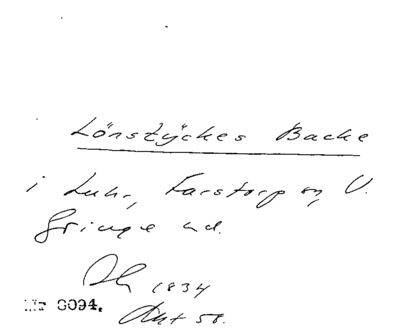 Lönstyckes Backe
i Luhr, Farstorp sn, V.
Göinge hd.
1834
Nr 8094.
Akt 58.